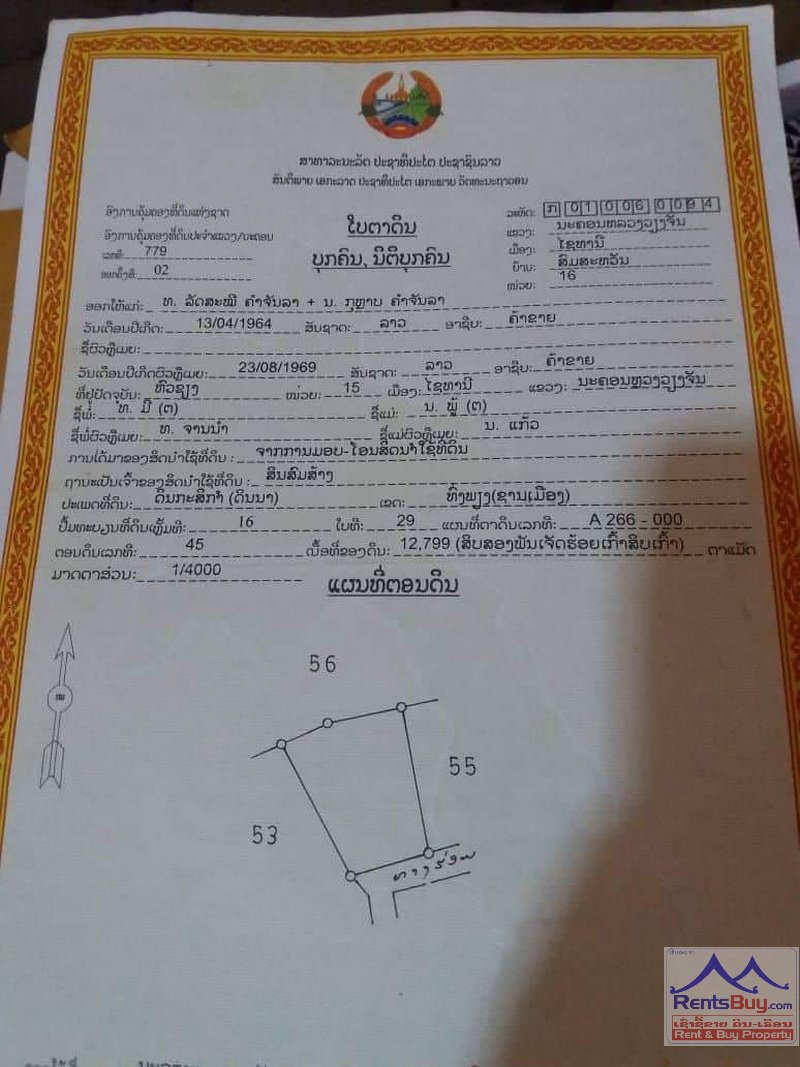 ສາທາລະນະລັດ ປະຊາທິປະໄຕ ປະຊາຊົນລາວ
ສັນຕິພາບ ເອກະລາດ ປະຊາທິປະໄຕ ເອກະພາບ ວັດທະນະຖາວອນ
ອົງການຄຸ້ມຄອງທີ່ດິນແຫ່ງຊາດ
ອົງການຄຸ້ມຄອງທີ່ດິນປະຈຳແຂວງ/ນະຄອນ
ເລກທີ: 779
ອອກຄັ້ງທີ: 02
ໃບຕາດິນ
ບຸກຄົນ, ນິຕິບຸກຄົນ
ລະຫັດ: ກ 01 006 0094
ແຂວງ: ນະຄອນຫລວງວຽງຈັນ
ເມືອງ: ໄຊທານີ
ບ້ານ: ສົມສະຫວັນ
ໜ່ວຍ: 16
ອອກໃຫ້ແກ່: ທ. ລັດສະໝີ ຄຳຈັນລາ + ນ. ກຸຫຼາບ ຄຳຈັນລາ
ວັນເດືອນປີເກີດ: 13/04/1964 ສັນຊາດ: ລາວ ອາຊີບ: ຄ້າຂາຍ
ຊື່ຜົວຫຼືເມຍ:
ວັນເດືອນປີເກີດຜົວຫຼືເມຍ: 23/08/1969 ສັນຊາດ: ລາວ ອາຊີບ: ຄ້າຂາຍ
ທີ່ຢູ່ປັດຈຸບັນ: ຫົວຊຽງ ໜ່ວຍ: 15 ເມືອງ: ໄຊທານີ ແຂວງ: ນະຄອນຫຼວງວຽງຈັນ
ຊື່ພໍ່: ທ. ມີ (ຕ) ຊື່ແມ່: ນ. ພູ້ (ຕ)
ຊື່ພໍ່ຜົວຫຼືເມຍ: ທ. ຈານນຳ ຊື່ແມ່ຜົວຫຼືເມຍ: ນ. ແກ້ວ
ການໄດ້ມາຂອງສິດນຳໃຊ້ທີ່ດິນ : ຈາກການມອບ-ໂອນສິດນຳໃຊ້ທີ່ດິນ
ຖານະເປັນເຈົ້າຂອງສິດນຳໃຊ້ທີ່ດິນ : ສິນສົມສ້າງ
ປະເພດທີ່ດິນ: ດິນກະສິກຳ (ດິນນາ) ເຂດ: ທົ່ງພຽງ(ຊານເມືອງ)
ປຶ້ມທະບຽນທີ່ດິນເຫຼັ້ມທີ: 16 ໃບທີ: 29 ແຜນທີ່ຕາດິນເລກທີ: A 266 - 000
ຕອນດິນເລກທີ: 45 ເນື້ອທີ່ຂອງດິນ: 12,799 (ສິບສອງພັນເຈັດຮ້ອຍເກົ້າສິບເກົ້າ) ຕາແມັດ
ມາດຕາສ່ວນ: 1/4000
ແຜນທີ່ຕອນດິນ
56
55
53
RentsBuy.com
ເຊົ່າຊື້ຂາຍ ດິນ-ເຮືອນ
Rent & Buy Property